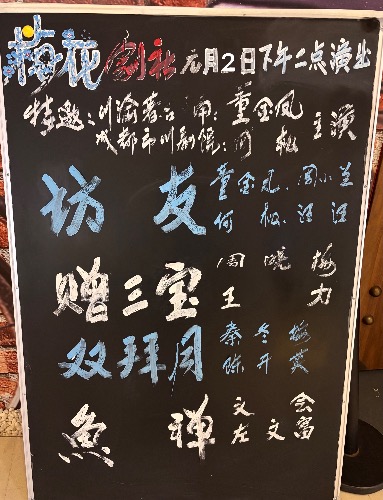 梅花剧社 元月2日下午二点演出
特邀：川渝喜古 闹：董金凤 主演
成都市川剧院：何 松
坊友 董金凤、周小兰
何松、江汪
赠三宝 周晓梅
王 力
双拜月 秦冬梅
陈开英
鱼禅 文 会
左文富